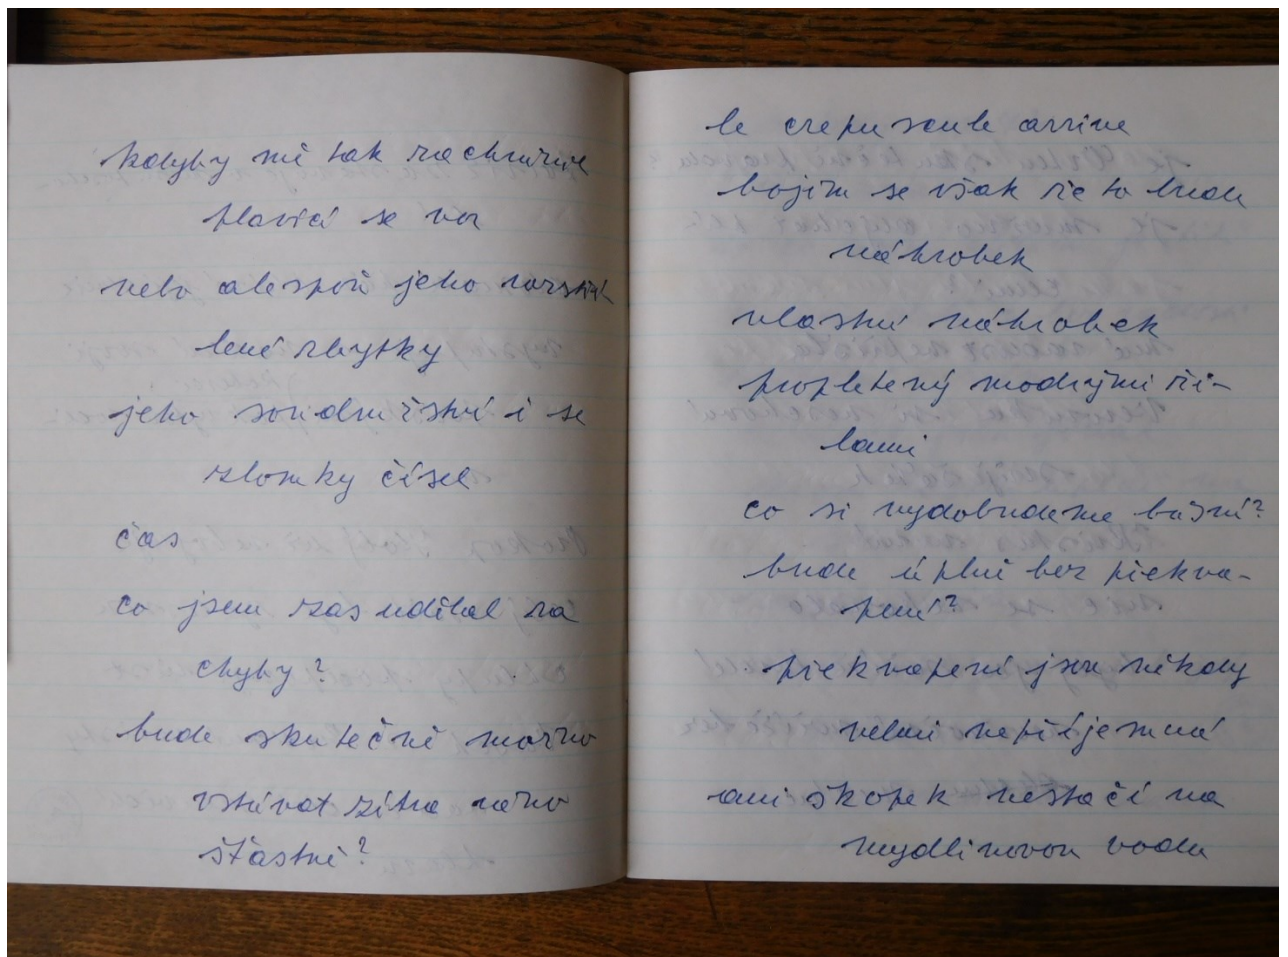 kdyby mě tak zachránil
plavící se vor
nebo alespoň jeho rozstří
lené zbytky
jeho soudružství i se
zlomky čísel
čas
co jsem zas udělal za
chyby?
bude skutečně možno
vstávat zítra ráno
šťastně?
le crepuscule arrive
bojím se však že to bude
náhrobek
vlastní náhrobek
propletený modrými ži-
lami
co si vydobudeme básní?
bude úplně bez překva-
pení?
překvapení jsou někdy
velmi nepříjemná
ani škopek nestačí na
mydlinovou vodu